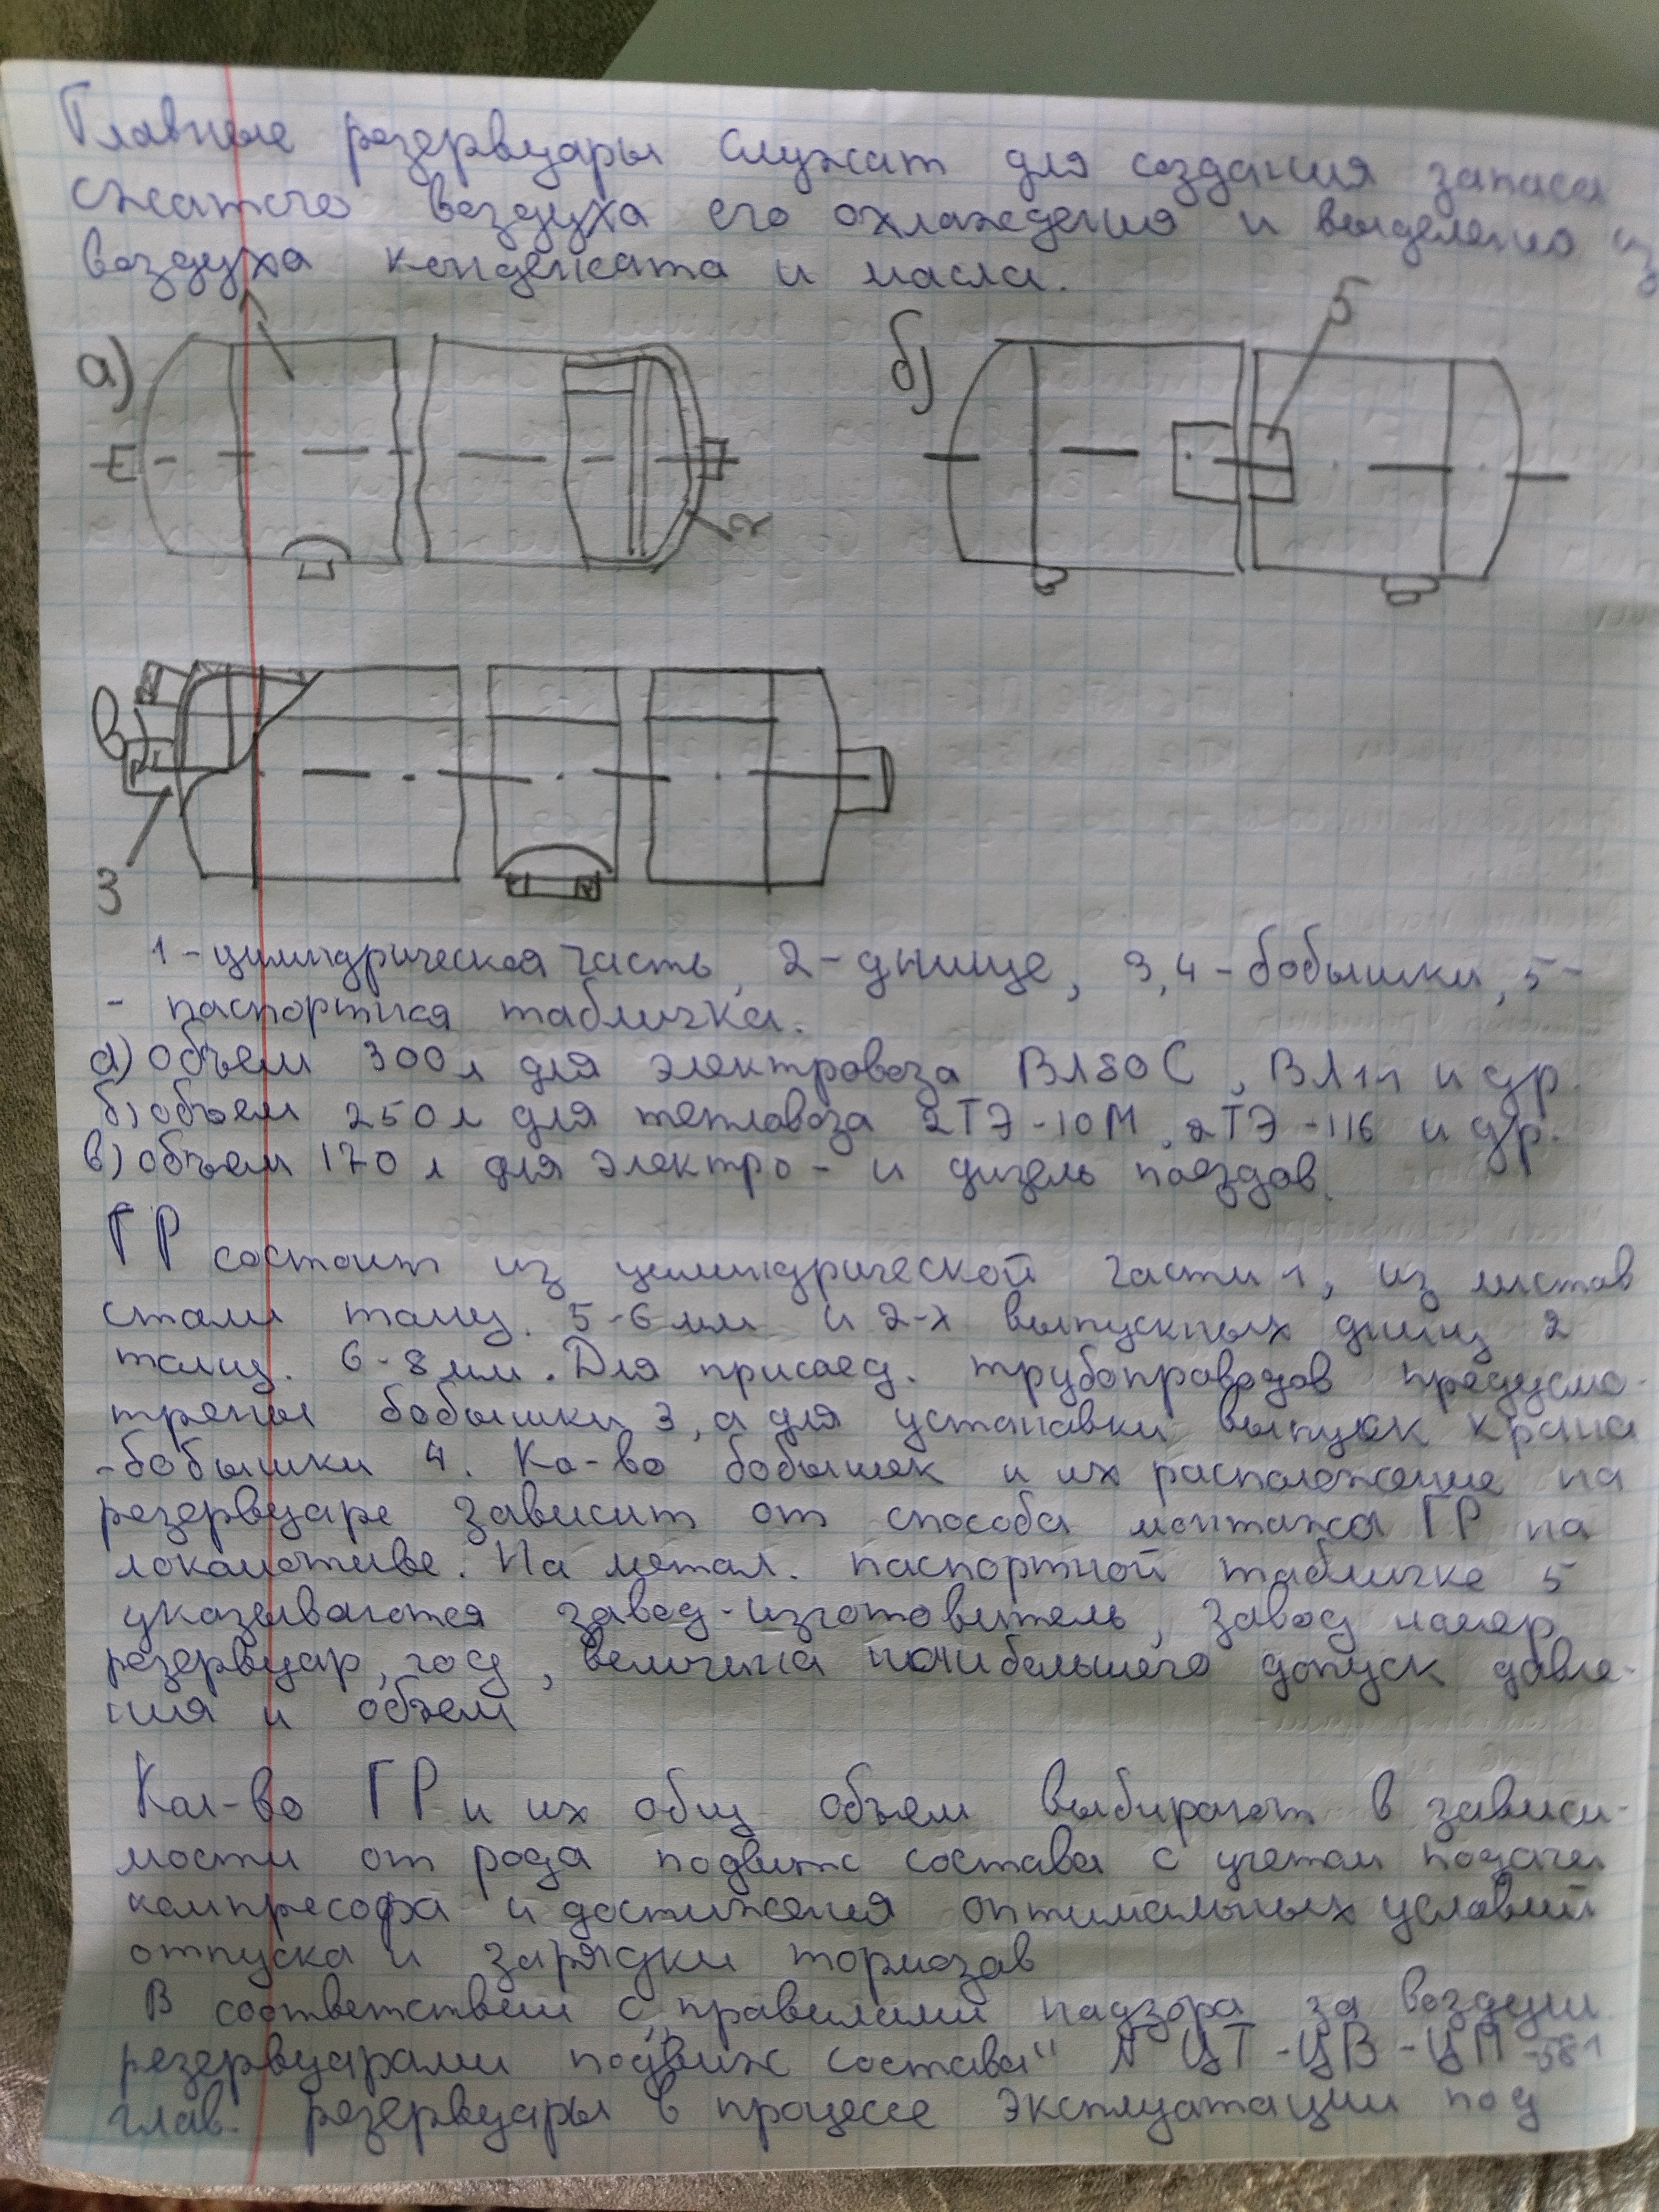 Главные резервуары служат для создания запаса
сжатого воздуха его охлаждения и выделения из
воздуха конденсата и масла.
а)
2
б)
5
в)
3
1-цилиндрическая часть, 2-днище, 3,4-бобышки, 5-
- паспортная табличка.
а) объем 300л для электровоза ВЛ80С, ВЛ11 и др.
б) объем 250л для тепловоза 2ТЭ-10М, 2ТЭ-116 и др.
в) объем 170 л для электро- и дизель поездов.
ГР состоит из цилиндрической части 1, из листов
стали толщ. 5-6мм и 2-х выпускных днищ 2
толщ. 6-8мм. Для присоед. трубопроводов предусмо-
трены бобышки 3, а для установки выпуск крана
-бобышки 4. Ко-во бобышек и их расположение на
резервуаре зависит от способа монтажа ГР на
локомотиве. На метал. паспортной табличке 5
указываются завод-изготовитель, завод номер
резервуар, год, величина наибольшего допуск давле-
ния и объем
Кол-во ГР и их общ объем выбирают в зависи-
мости от рода подвиж состава с учетом подачи
компресора и достижения оптимальных условий
отпуска и зарядки тормозов
В соответствии с "правилами надзора за воздушн
резервуарами подвиж состава" № ЦТ-ЦВ-ЦП-581
глав. резервуары в процессе эксплуатации под